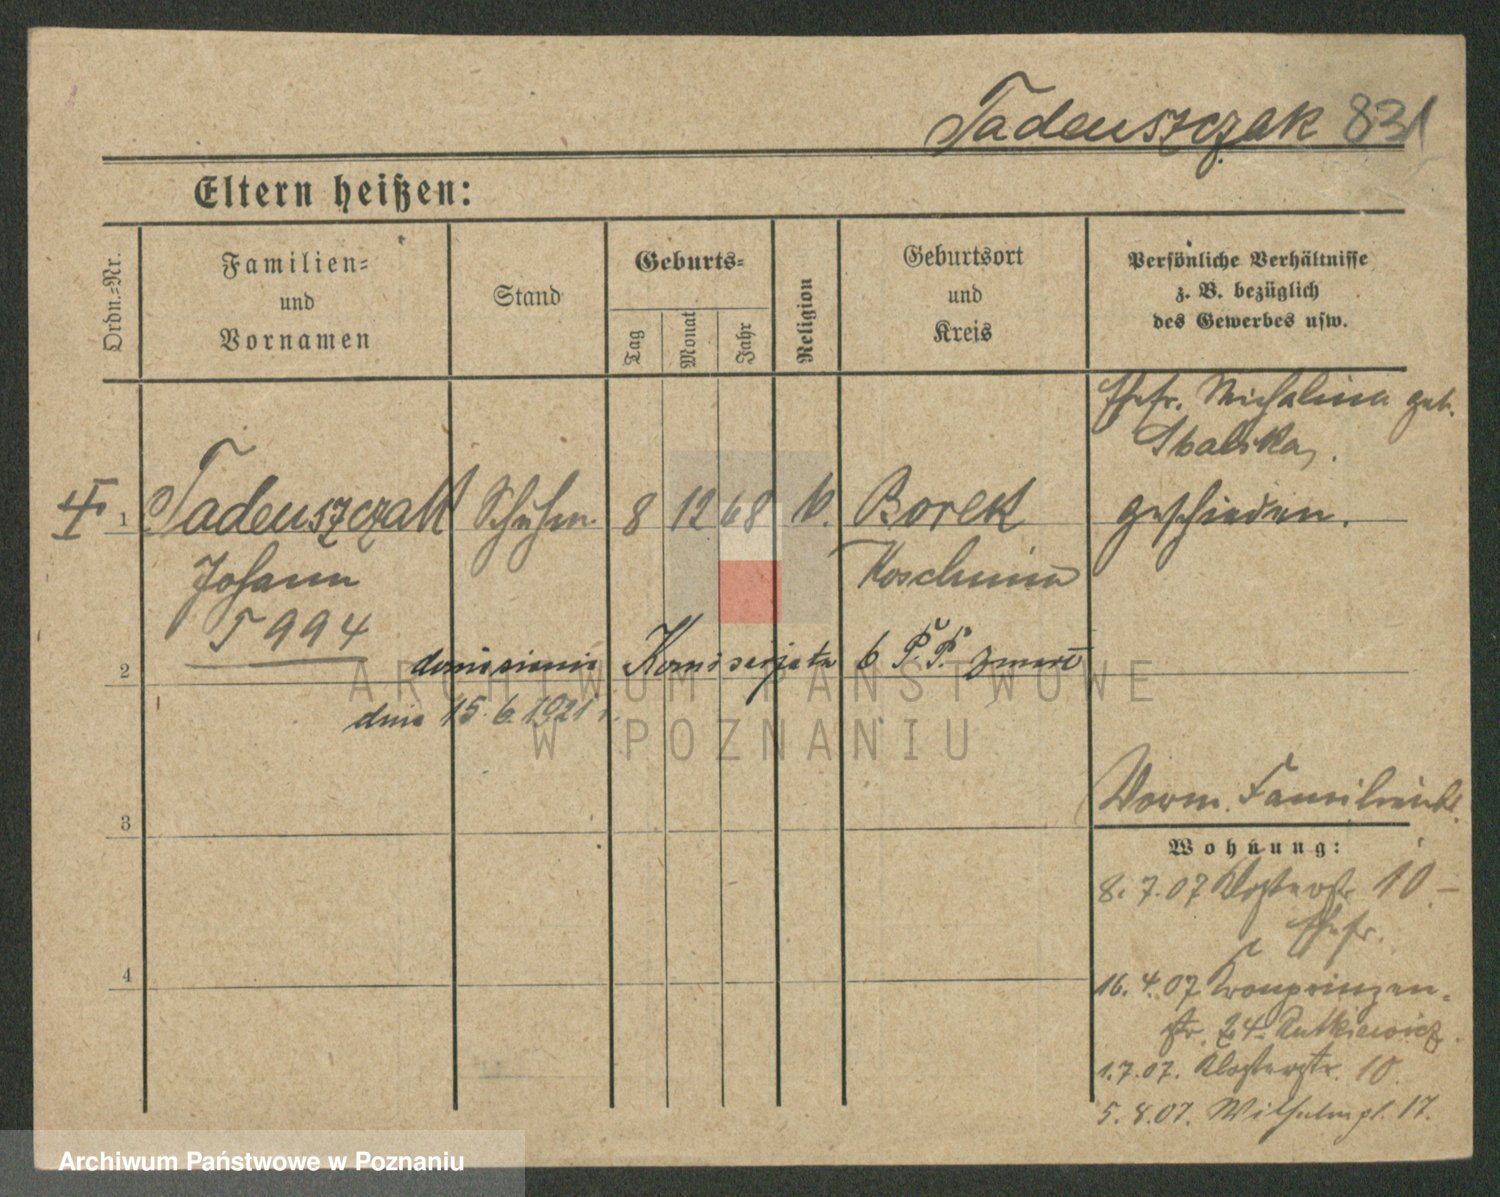 Tadeuszczak 831
Eltern heißen:
Ordn.-Nr.
Familien-
und
Vornamen
Stand
Geburts-
Tag
Monat
Jahr
Religion
Geburtsort
und
Kreis
Persönliche Verhältnisse
z. B. bezüglich
des Gewerbes usw.
Ehefr. Michalina geb.
1 Tadeuszczak Schuhm. 8 12 68 k. Borek geschieden.
Johann Koschmin
T 994
2 doniesienie Komisarjatu 6 P. P. zmarł
dnia 15.6.1921 r.
3
Worm. Familienbl.
Wohnung:
8.7.07 Klosterstr. 10 –
Ehefr.
4
16.4.07 Kronprinzen-
str. 24 Rutkiewicz.
1.7.07. Klosterstr. 10.
5.8.07. Wilhelmpl. 17.
ARCHIWUM PAŃSTWOWE
W POZNANIU
Archiwum Państwowe w Poznaniu